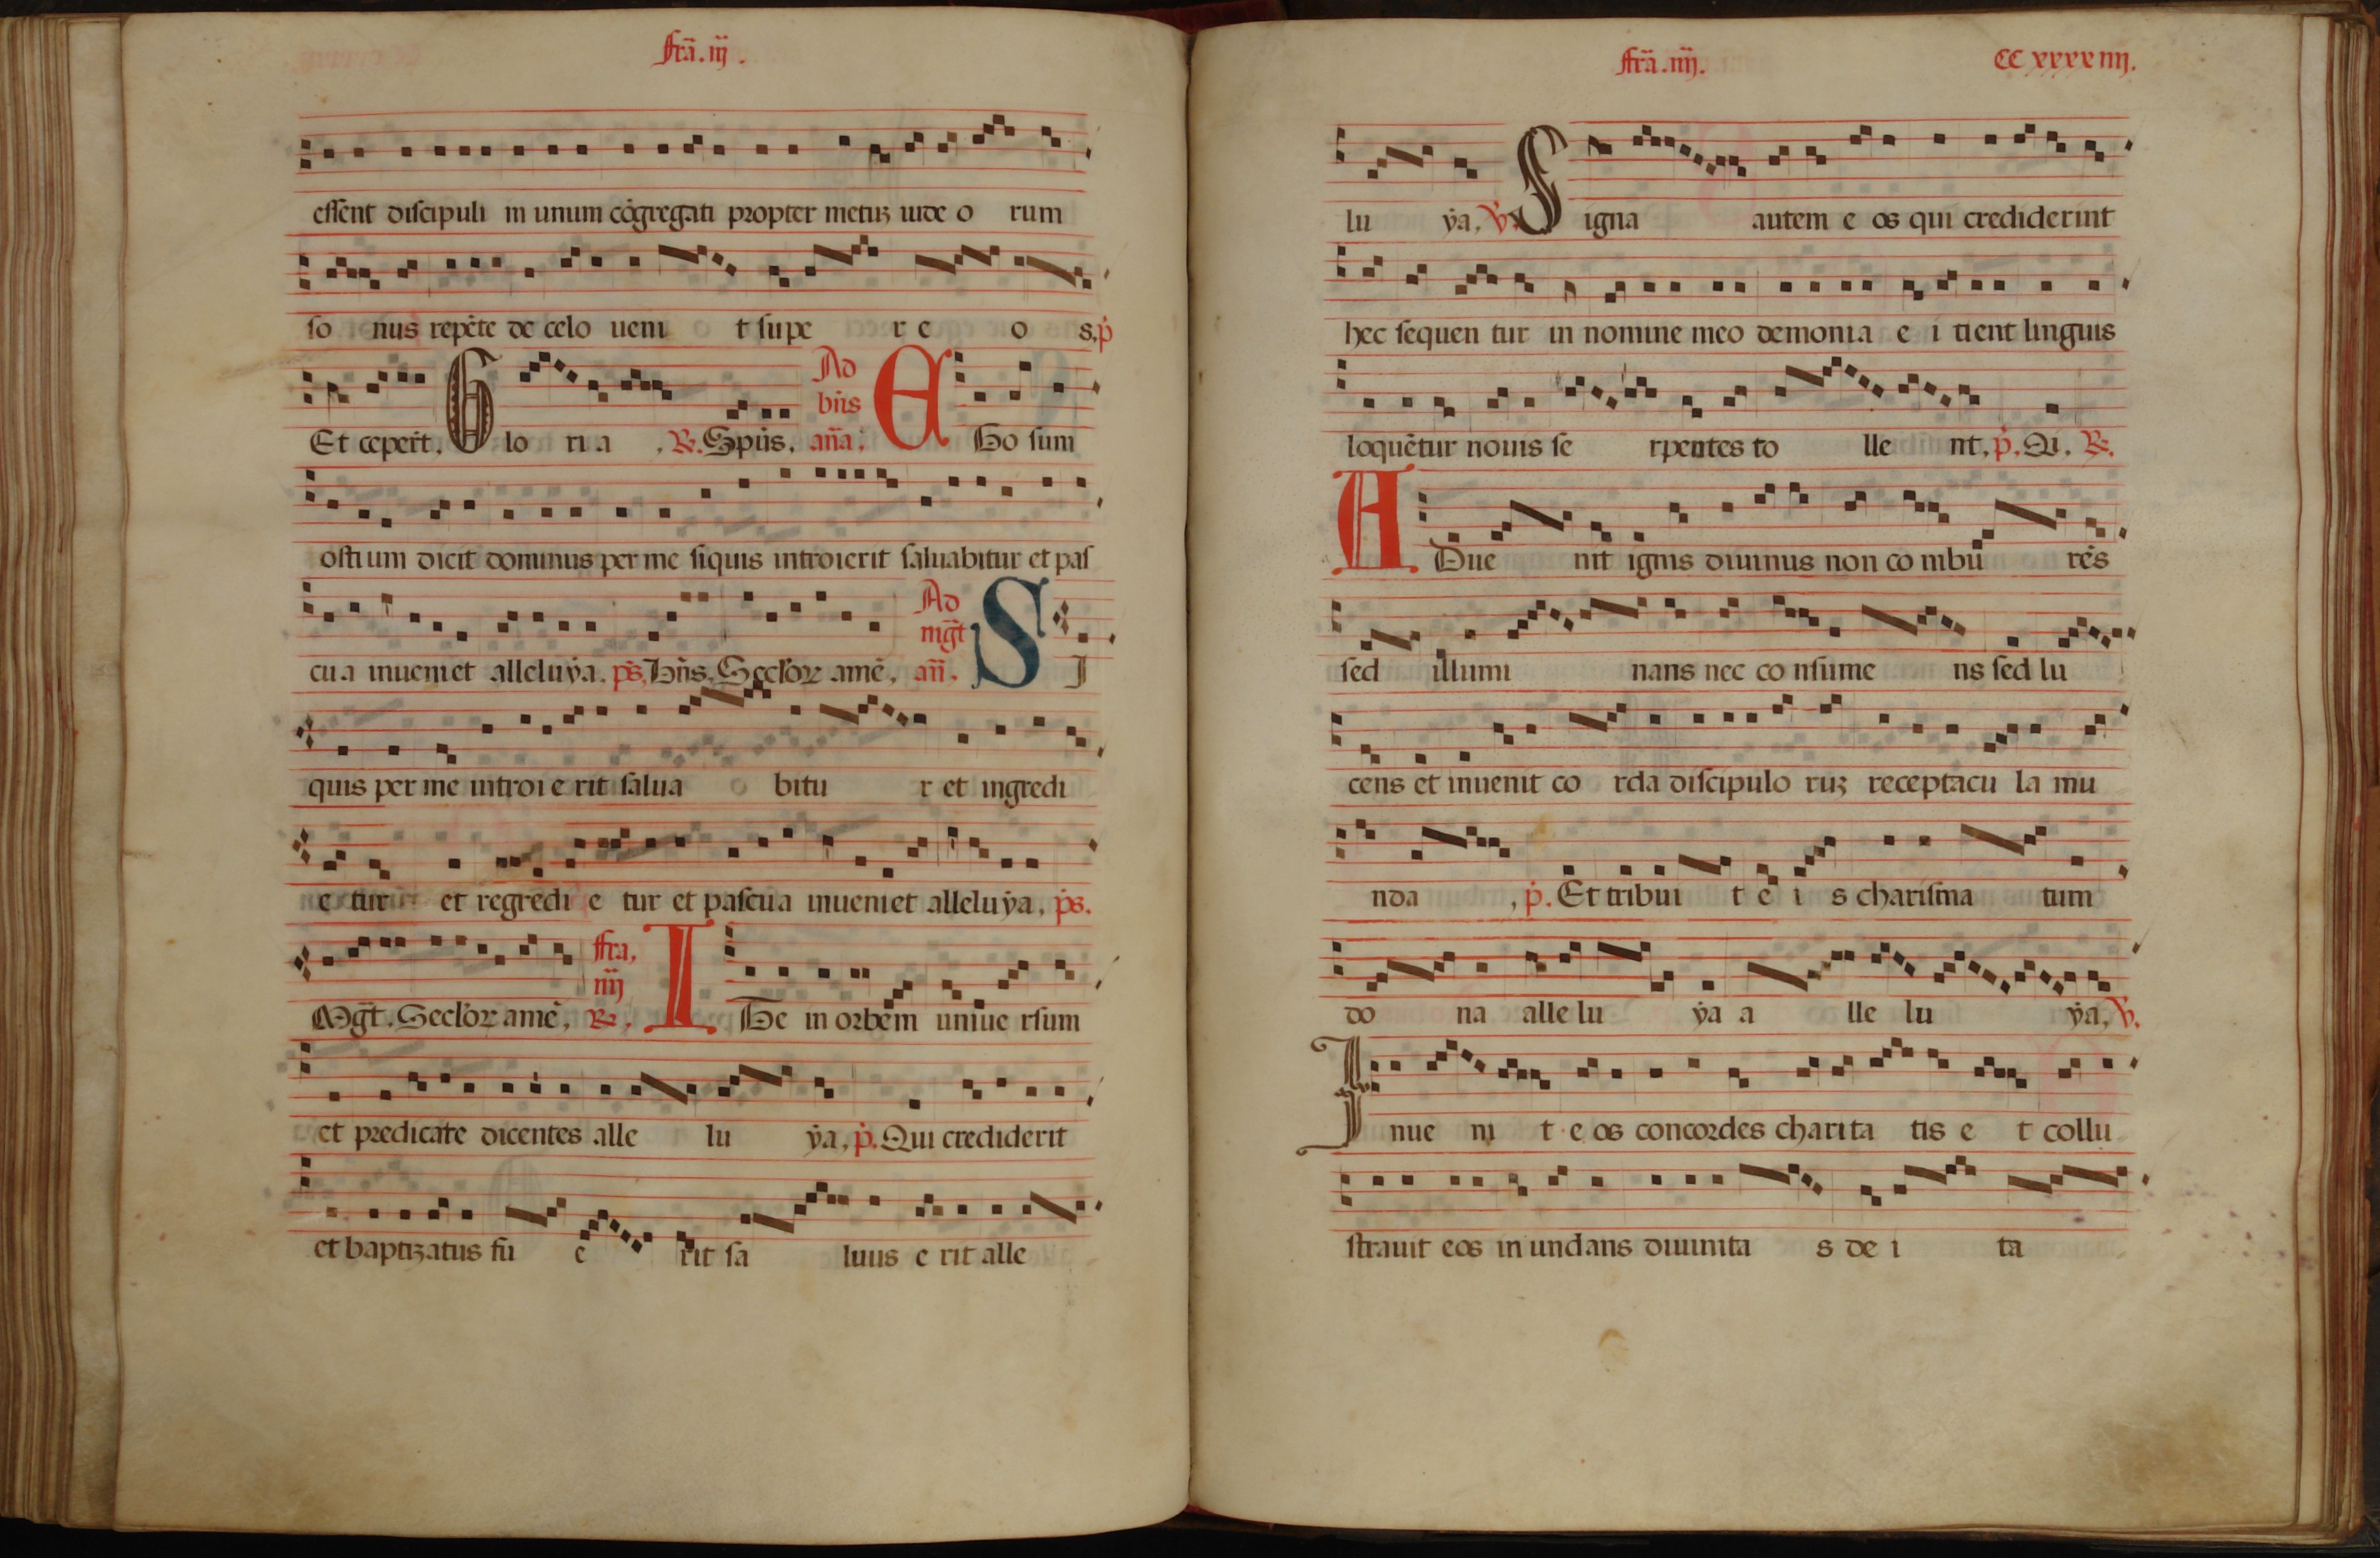 fria. iij.
essent discipuli in unum cōgregati propter metuꝫ iude o rum
so nus repēte de celo ueni t supe r e o s, p̄
Et ceper̄t. Glo ri a . ℟. Sp̄ūs. Ad bn̄s añа. Eho sum
ostium dicit dominus per me siquis introierit saluabitur et pas
cu a inueniet alleluẏa. p̄s. Bn̄s. Secloꝝ amē. Ad mḡt añ. Si
quis per me introi e rit salua bitu r et ingredi
e tur et regredi e tur et pascua inueniet alleluẏa. p̄s.
Mḡt. Secloꝝ amē. fria. iiij ℟. Ite in orbem uniue rsum
et predicate dicentes alle lu ẏa. p̄. Qui crediderit
et baptizatus fu e rit sa luus e rit alle
fria. iiij. CC xxxx iiij.
lu ẏa. ℣. Signa autem e os qui crediderint
hec sequen tur in nomine meo demonia e i cient linguis
loquētur nouis se rpentes to lle nt. p̄. Qi. ℟.
Adue nit ignis diuinus non co mbu rēs
sed illumi nans nec co nsume ns sed lu
cens et inuenit co rda discipulo ruꝫ receptacu la mu
nda , p̄. Et tribui t e i s charisma tum
do na alle lu ẏa a lle lu ẏa, ℣.
Inue ni t e os concordes charita tis e t collu
strauit eos inundans diuinita s de i ta